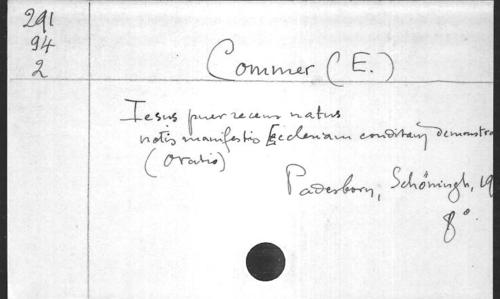 291
94
2
Commer (E.)
Iesus puer recens natus
notis manifestis Ecclesiam conditam demonstra
(Oratio)
Paderborn, Schöningh, 19
8°.